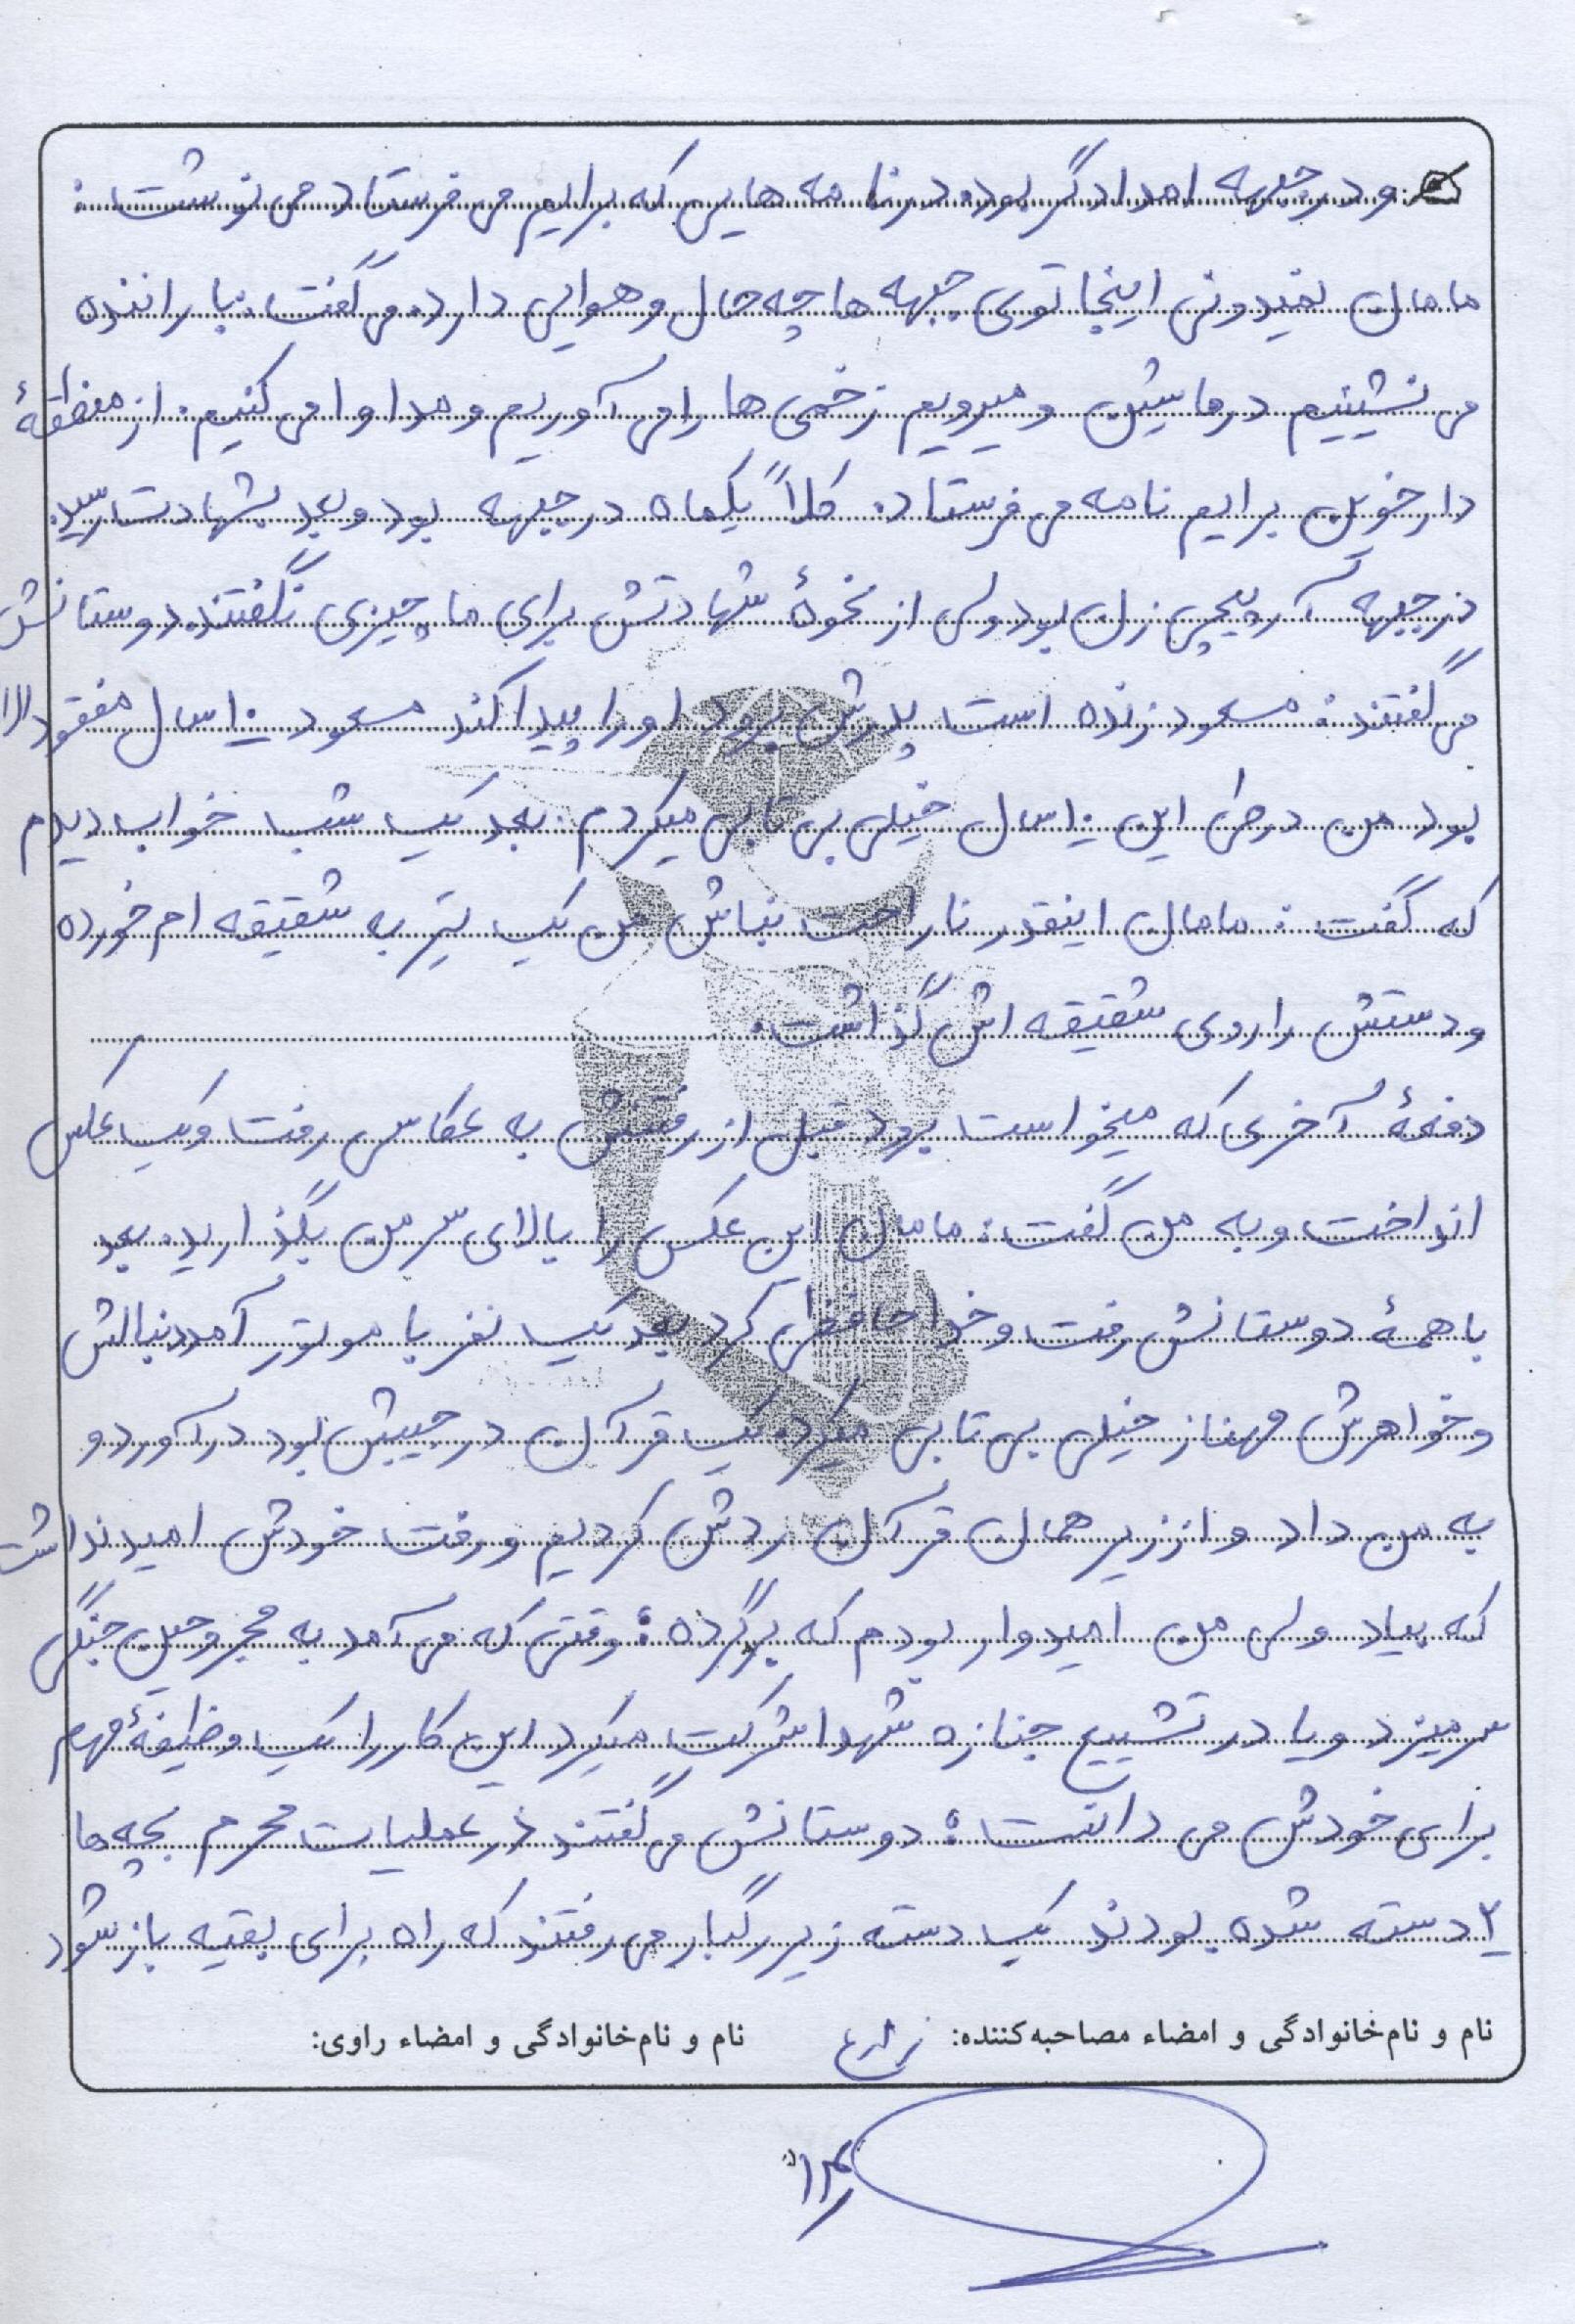 و در جبهه امدادگر بود. در نامه هایی که برایم می فرستاد می نوشت:
مامان نمیدونی اینجا توی جبهه ها چه حال و هوایی دارد. می گفت: با راننده
می نشینیم در ماشین و میرویم زخمی ها را می آوریم و مداوا می کنیم. از منطقهٔ
دارخوین برایم نامه می فرستاد. کلاً یکماه در جبهه بود و بعد بشهادت رسید.
در جبهه آرپیجی زن بود ولی از نحوهٔ شهادتش برای ما چیزی نگفتند. دوستانش
می گفتند: مسعود زنده است پدرش برود او را پیدا کند مسعود ۱۰ سال مفقودالا
بود من در طی این ۱۰ سال خیلی بی تابی میکردم. بعد یک شب خواب دیدم
که گفت: مامان اینقدر ناراحت نباش من یک تیر به شقیقه ام خورده
و دستش را روی شقیقه اش گذاشت.
دفعهٔ آخری که میخواست برود قبل از رفتنش به عکاسی رفت و یک عکس
انداخت و به من گفت: مامان این عکس را بالای سر من بگذارید. بعد
با همهٔ دوستانش رفت و خداحافظی کرد بعد یک نفر با موتور آمد دنبالش
و خواهرش مهناز خیلی بی تابی میکرد. یک قرآن در جیبش بود درآورد و
به من داد و از زیر همان قرآن ردش کردیم و رفت خودش امید نداشت
که بیاد ولی من امیدوار بودم که برگرده: وقتی که می آمد به مجروحین جنگی
سر میزد و یا در تشییع جنازه شهدا شرکت میکرد این کار را یک وظیفهٔ مهم
برای خودش می دانست: دوستانش می گفتند در عملیات محرم بچه ها
۲ دسته شده بودند یک دسته زیر رگبار می رفتند که راه برای بقیه باز شود
نام و نام‌خانوادگی و امضاء مصاحبه‌کننده: نام و نام‌خانوادگی و امضاء راوی: